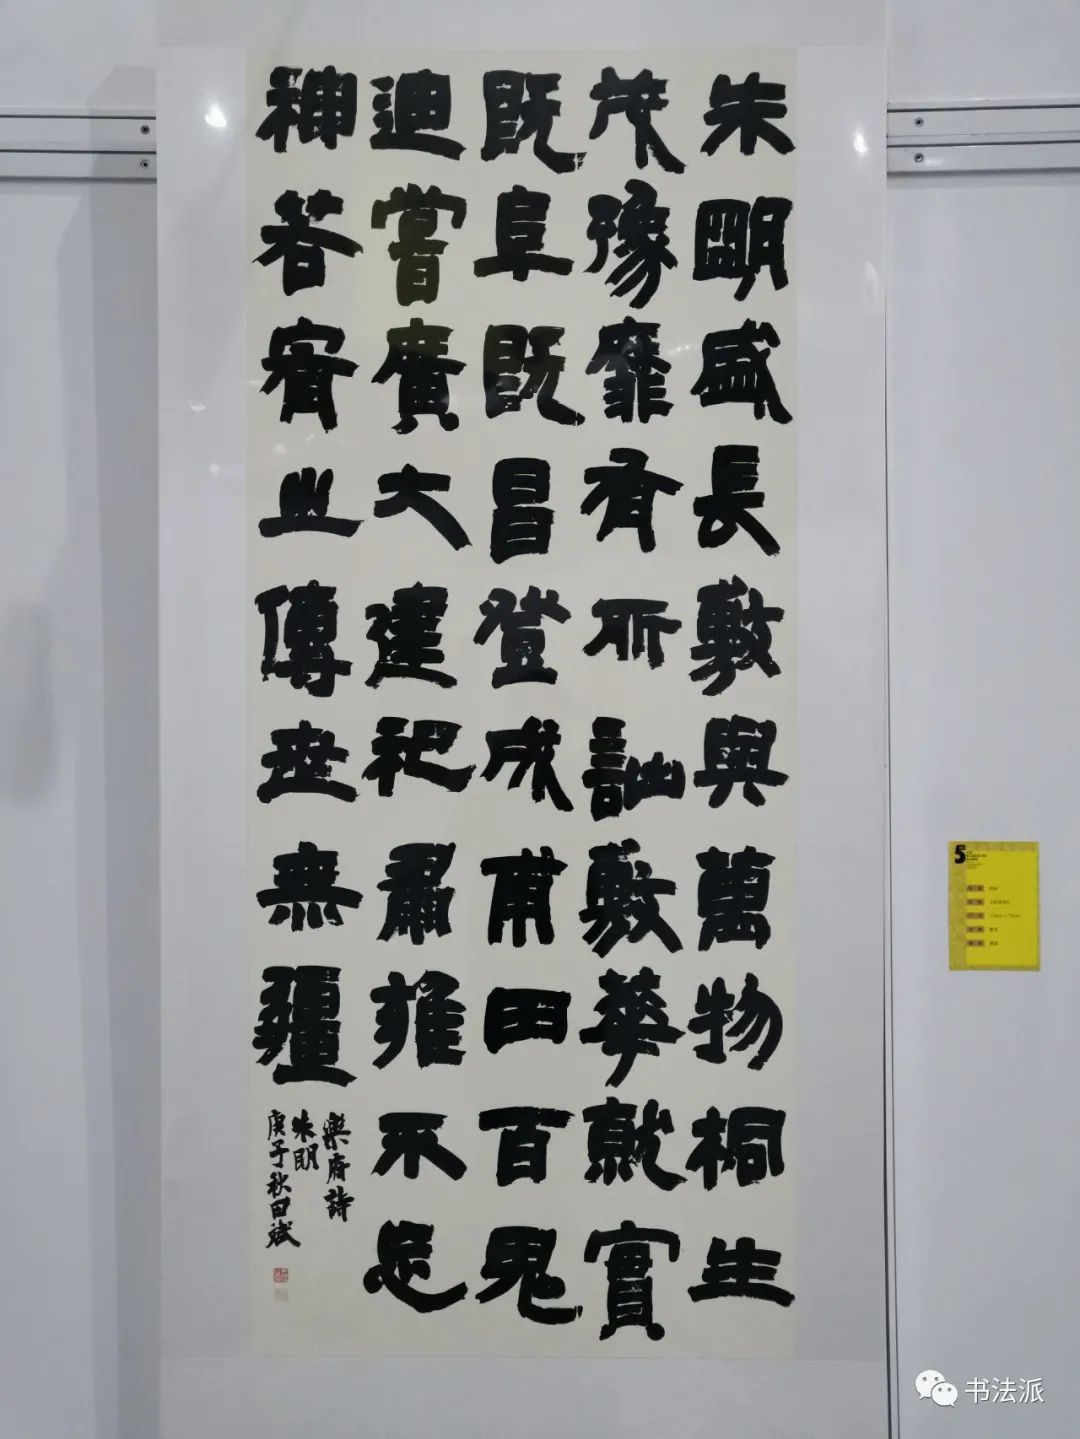 朱明盛長敷與萬物桐生
茂豫靡有所詘敷華就實
既阜既昌登成甫田百鬼
迪嘗廣大建祀肅雍不忘
神若宥之傳世無疆
樂府詩
朱明
庚子秋田斌
5
书法派